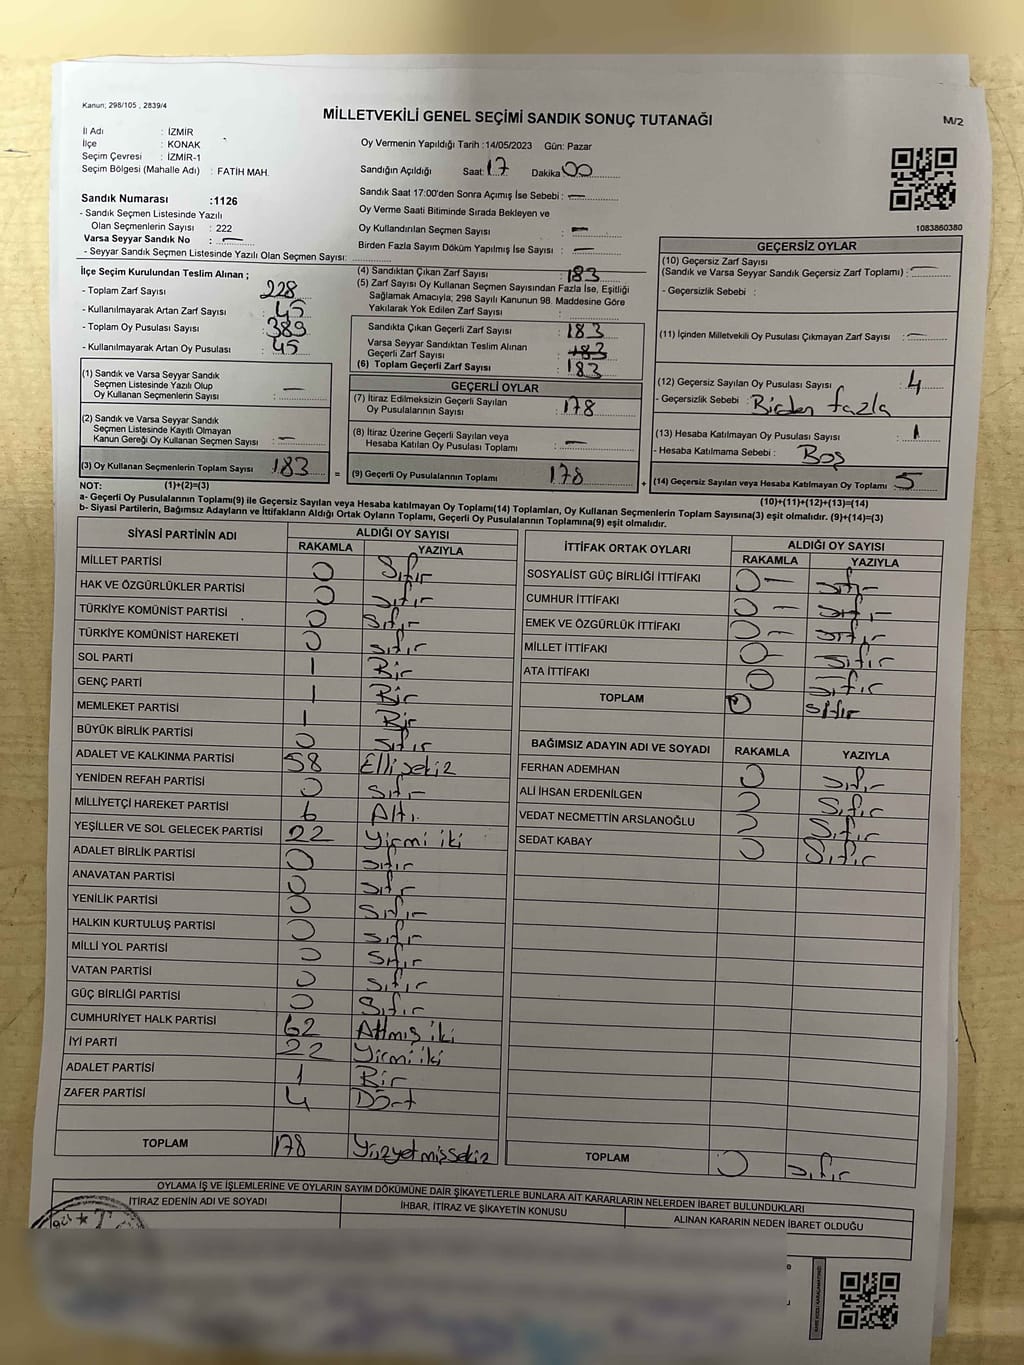 Kanun; 298/105 , 2839/4
MİLLETVEKİLİ GENEL SEÇİMİ SANDIK SONUÇ TUTANAĞI
M/2
İl Adı : İZMİR
İlçe : KONAK
Seçim Çevresi : İZMİR-1
Seçim Bölgesi (Mahalle Adı) : FATİH MAH.
Oy Vermenin Yapıldığı Tarih :14/05/2023 Gün: Pazar
Sandığın Açıldığı Saat: 17 Dakika 00
Sandık Saat 17:00'den Sonra Açımış İse Sebebi : —
Oy Verme Saati Bitiminde Sırada Bekleyen ve
Oy Kullandırılan Seçmen Sayısı : —
Birden Fazla Sayım Döküm Yapılmış İse Sayısı : —
1083860380
Sandık Numarası :1126
- Sandık Seçmen Listesinde Yazılı
Olan Seçmenlerin Sayısı : 222
Varsa Seyyar Sandık No : —
- Seyyar Sandık Seçmen Listesinde Yazılı Olan Seçmen Sayısı:
İlçe Seçim Kurulundan Teslim Alınan ;
- Toplam Zarf Sayısı : 228
- Kullanılmayarak Artan Zarf Sayısı : 45
- Toplam Oy Pusulası Sayısı : 389
- Kullanılmayarak Artan Oy Pusulası : 45
(1) Sandık ve Varsa Seyyar Sandık
Seçmen Listesinde Yazılı Olup
Oy Kullanan Seçmenlerin Sayısı : —
(2) Sandık ve Varsa Seyyar Sandık
Seçmen Listesinde Kayıtlı Olmayan
Kanun Gereği Oy Kullanan Seçmen Sayısı : —
(3) Oy Kullanan Seçmenlerin Toplam Sayısı 183
(4) Sandıktan Çıkan Zarf Sayısı : 183
(5) Zarf Sayısı Oy Kullanan Seçmen Sayısından Fazla İse, Eşitliği
Sağlamak Amacıyla; 298 Sayılı Kanunun 98. Maddesine Göre
Yakılarak Yok Edilen Zarf Sayısı :
Sandıkta Çıkan Geçerli Zarf Sayısı : 183
Varsa Seyyar Sandıktan Teslim Alınan
Geçerli Zarf Sayısı : 183
(6) Toplam Geçerli Zarf Sayısı : 183
GEÇERLİ OYLAR
(7) İtiraz Edilmeksizin Geçerli Sayılan
Oy Pusulalarının Sayısı : 178
(8) İtiraz Üzerine Geçerli Sayılan veya
Hesaba Katılan Oy Pusulası Toplamı : —
= (9) Geçerli Oy Pusulalarının Toplamı 178
GEÇERSİZ OYLAR
(10) Geçersiz Zarf Sayısı
(Sandık ve Varsa Seyyar Sandık Geçersiz Zarf Toplamı) : —
- Geçersizlik Sebebi :
(11) İçinden Milletvekili Oy Pusulası Çıkmayan Zarf Sayısı : —
(12) Geçersiz Sayılan Oy Pusulası Sayısı : 4
- Geçersizlik Sebebi : Birden fazla
(13) Hesaba Katılmayan Oy Pusulası Sayısı : 1
- Hesaba Katılmama Sebebi : Boş
+ (14) Geçersiz Sayılan veya Hesaba Katılmayan Oy Toplamı : 5
NOT: (1)+(2)=(3)
(10)+(11)+(12)+(13)=(14)
a- Geçerli Oy Pusulalarının Toplamı(9) ile Geçersiz Sayılan veya Hesaba katılmayan Oy Toplamı(14) Toplamları, Oy Kullanan Seçmenlerin Toplam Sayısına(3) eşit olmalıdır. (9)+(14)=(3)
b- Siyasi Partilerin, Bağımsız Adayların ve İttifakların Aldığı Ortak Oyların Toplamı, Geçerli Oy Pusulalarının Toplamına(9) eşit olmalıdır.
SİYASİ PARTİNİN ADI ALDIĞI OY SAYISI
RAKAMLA YAZIYLA
MİLLET PARTİSİ 0 Sıfır
HAK VE ÖZGÜRLÜKLER PARTİSİ 0 sıfır
TÜRKİYE KOMÜNİST PARTİSİ 0 Sıfır
TÜRKİYE KOMÜNİST HAREKETİ 0 sıfır
SOL PARTİ 1 Bir
GENÇ PARTİ 1 Bir
MEMLEKET PARTİSİ 1 Bir
BÜYÜK BİRLİK PARTİSİ 0 sıfır
ADALET VE KALKINMA PARTİSİ 58 Ellisekiz
YENİDEN REFAH PARTİSİ 0 Sıfır
MİLLİYETÇİ HAREKET PARTİSİ 6 Altı
YEŞİLLER VE SOL GELECEK PARTİSİ 22 Yirmi iki
ADALET BİRLİK PARTİSİ 0 sıfır
ANAVATAN PARTİSİ 0 sıfır
YENİLİK PARTİSİ 0 Sıfır
HALKIN KURTULUŞ PARTİSİ 0 sıfır
MİLLİ YOL PARTİSİ 0 Sıfır
VATAN PARTİSİ 0 sıfır
GÜÇ BİRLİĞİ PARTİSİ 0 Sıfır
CUMHURİYET HALK PARTİSİ 62 Altmış iki
İYİ PARTİ 22 Yirmi iki
ADALET PARTİSİ 1 Bir
ZAFER PARTİSİ 4 Dört
TOPLAM 178 Yüzyetmişsekiz
İTTİFAK ORTAK OYLARI ALDIĞI OY SAYISI
RAKAMLA YAZIYLA
SOSYALİST GÜÇ BİRLİĞİ İTTİFAKI 0 — sıfır
CUMHUR İTTİFAKI 0 — sıfır
EMEK VE ÖZGÜRLÜK İTTİFAKI 0 — sıfır
MİLLET İTTİFAKI 0 — sıfır
ATA İTTİFAKI 0 sıfır
TOPLAM 0 sıfır
BAĞIMSIZ ADAYIN ADI VE SOYADI RAKAMLA YAZIYLA
FERHAN ADEMHAN 0 sıfır
ALİ İHSAN ERDENİLGEN 0 Sıfır
VEDAT NECMETTİN ARSLANOĞLU 0 Sıfır
SEDAT KABAY 0 Sıfır
TOPLAM 0 sıfır
OYLAMA İŞ VE İŞLEMLERİNE VE OYLARIN SAYIM DÖKÜMÜNE DAİR ŞİKAYETLERLE BUNLARA AİT KARARLARIN NELERDEN İBARET BULUNDUKLARI
İTİRAZ EDENİN ADI VE SOYADI İHBAR, İTİRAZ VE ŞİKAYETİN KONUSU ALINAN KARARIN NEDEN İBARET OLDUĞU